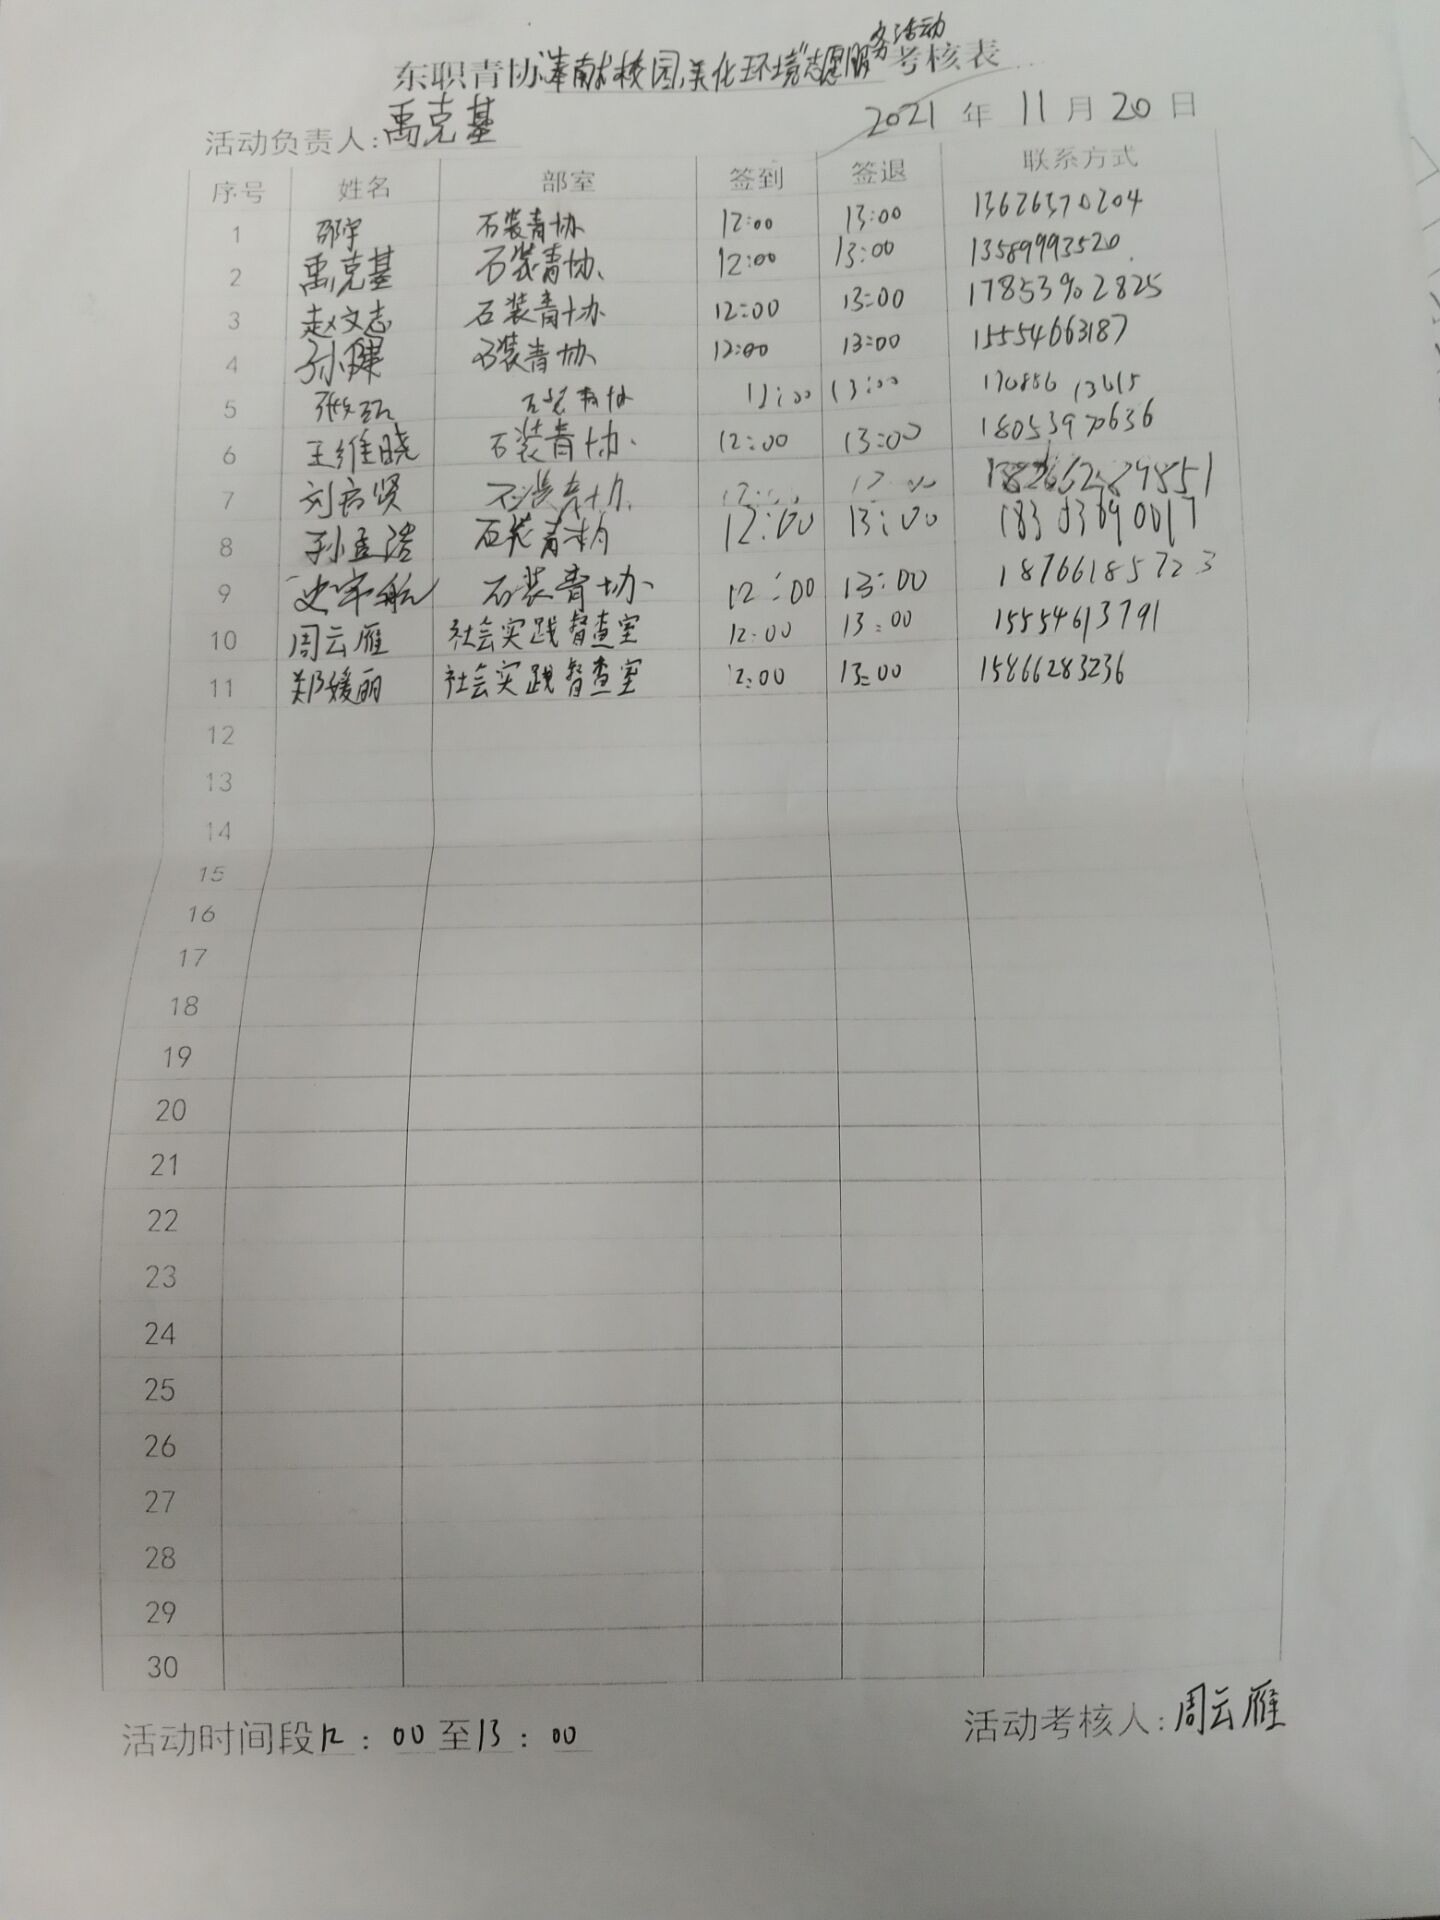 东职青协“奉献校园,美化环境”志愿服务活动考核表
活动负责人:禹克基 2021年11月20日
序号 姓名 部室 签到 签退 联系方式
1 邵宇 石装青协 12:00 13:00 13626370204
2 禹克基 石装青协 12:00 13:00 13589993520
3 赵文志 石装青协 12:00 13:00 17853902825
4 孙骥 石装青协 12:00 13:00 15554663187
5 石装青协 13:00
6 王维晓 石装青协 12:00 13:00 18053970636
7 刘 贤 石装青协
8 孙孟浩 石装青协 12:00 13:00
9 史宇航 石装青协 12:00 13:00 18766185723
10 周云雁 社会实践督查室 12:00 13:00 15554613791
11 郑媛丽 社会实践督查室 12:00 13:00 15866283236
12
13
14
15
16
17
18
19
20
21
22
23
24
25
26
27
28
29
30
活动时间段12:00至13:00 活动考核人:周云雁